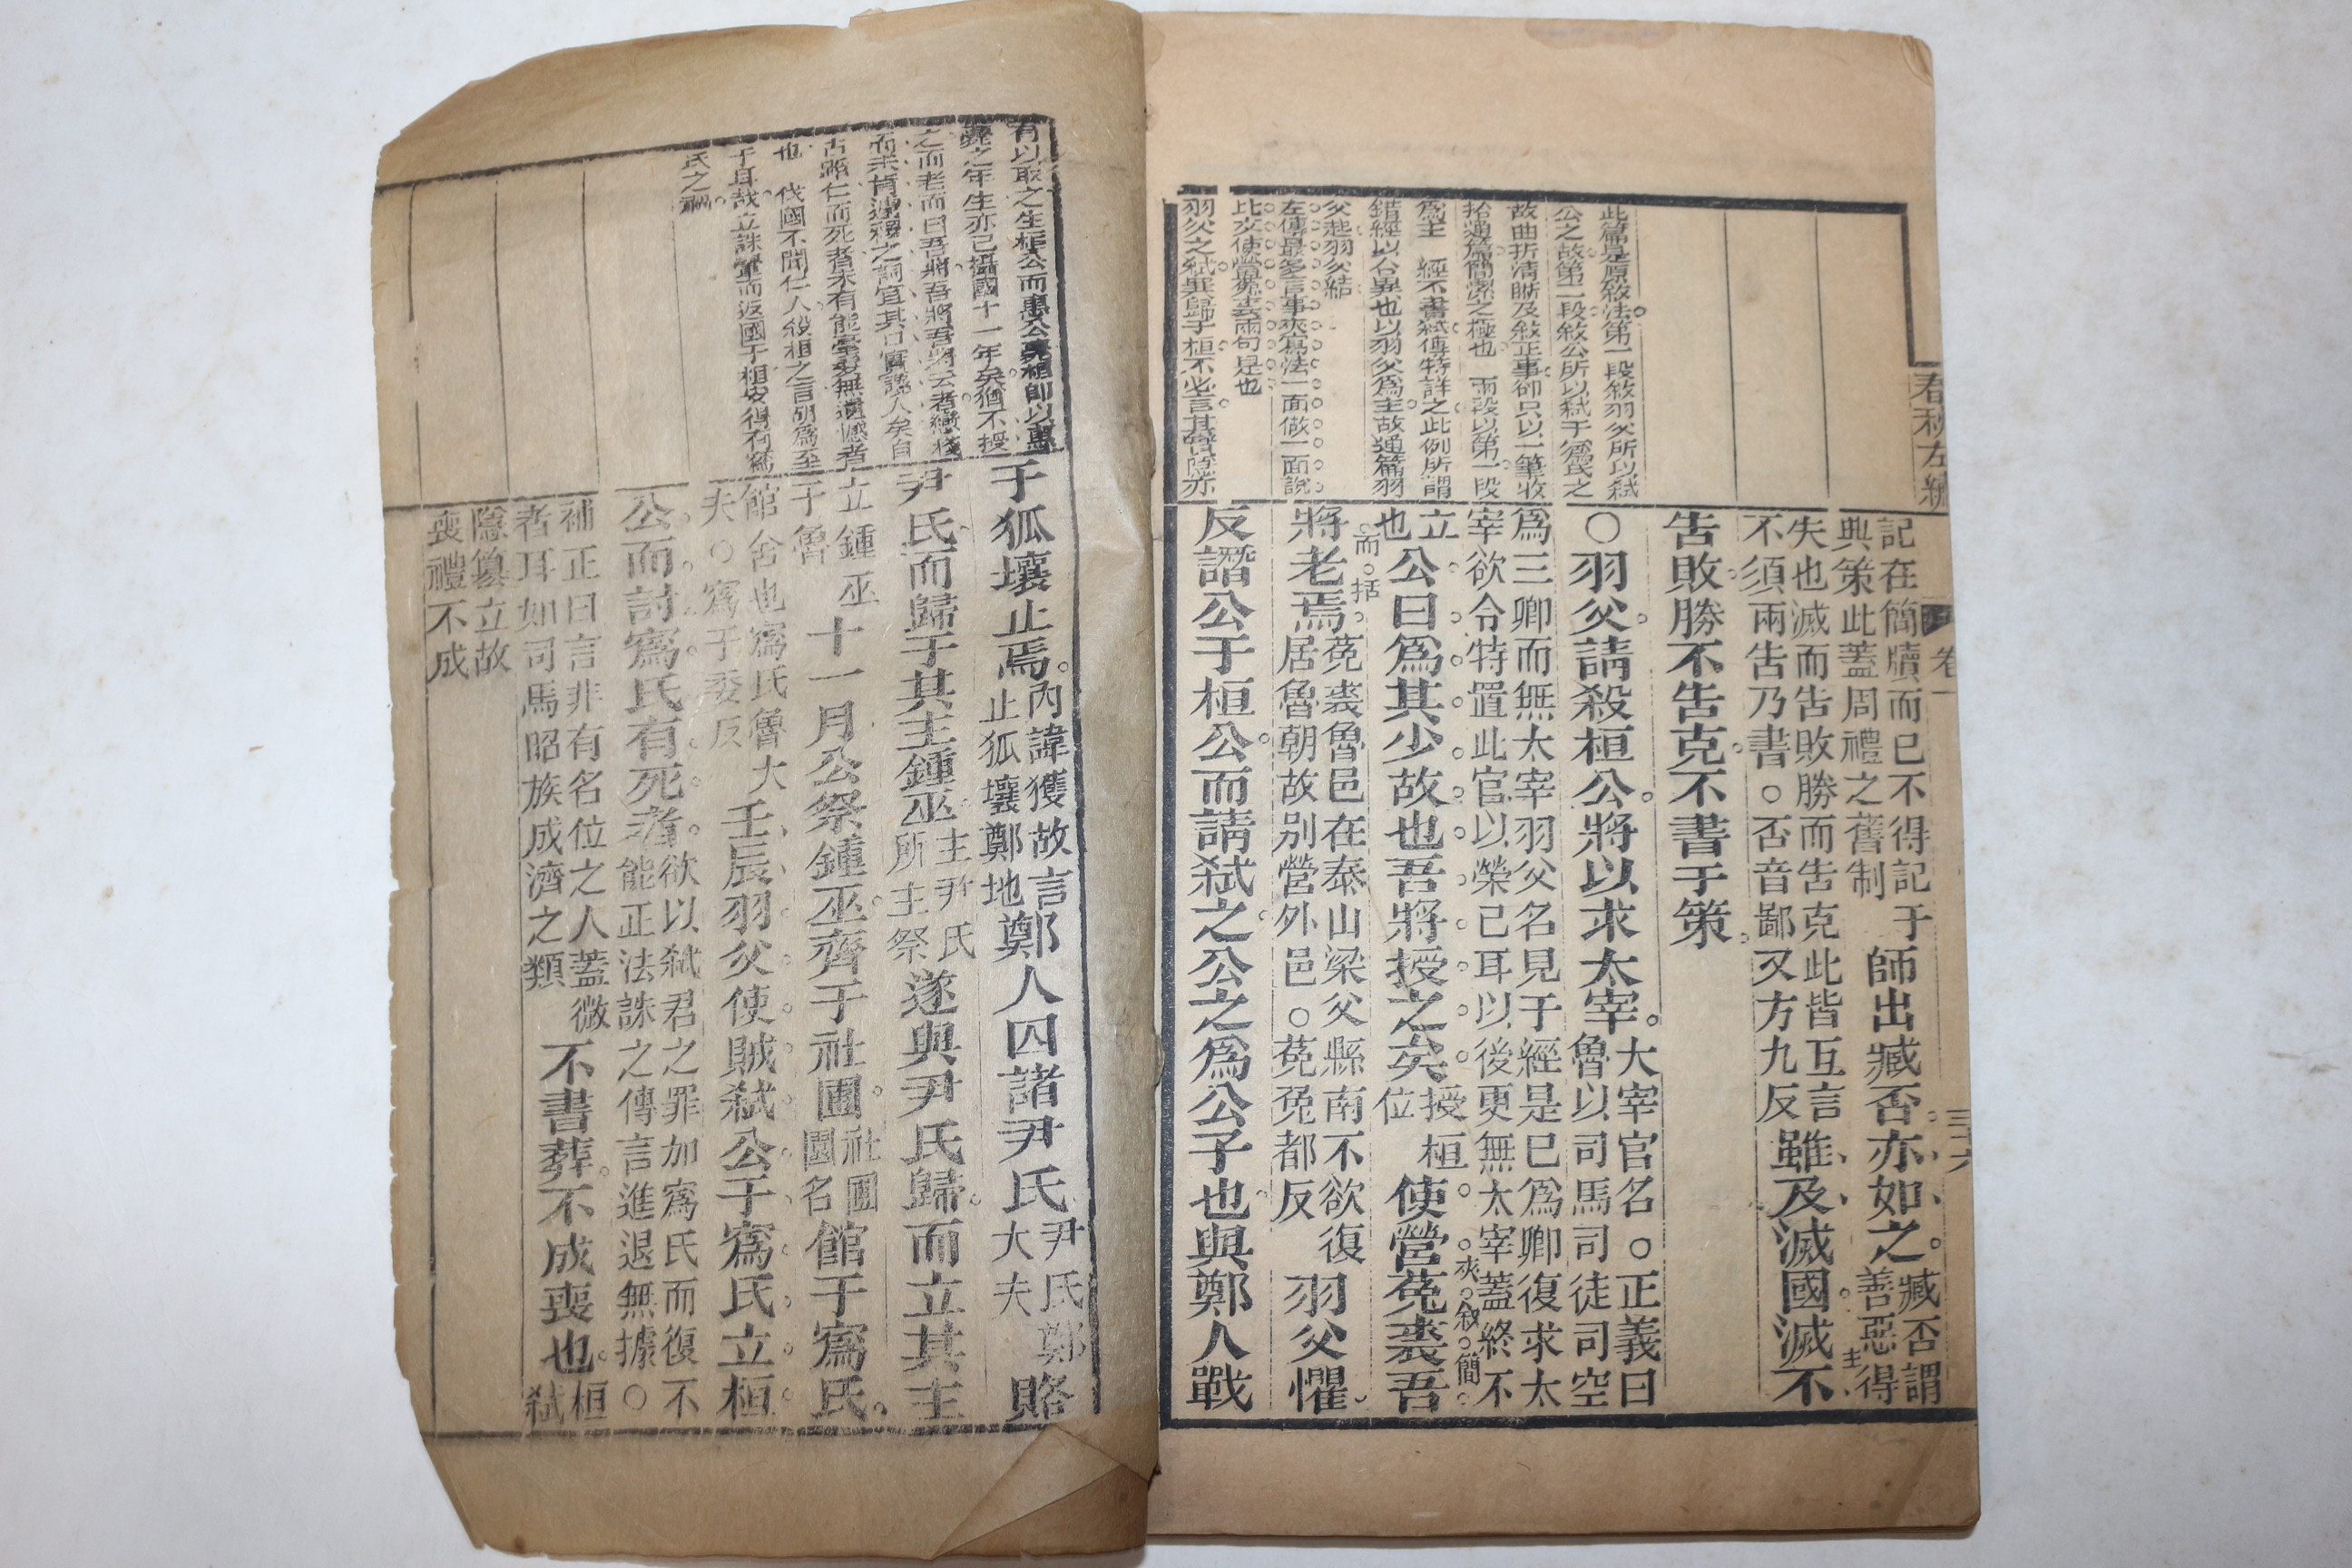 春秋左繡
卷一
三六
此篇是原敘法第一段敘羽父所以弒
公之故第二段敘公所以弒于寪氏之
故曲折清晰及敘正事卻只以一筆收
拾通篇簡潔之極也　兩段以第一段
爲主　經不書弒傳特詳之此例所謂
錯經以合異也以羽父爲主故通篇羽
父起羽父結
左傳最多言事夾寫法一面做一面說
比交使營菟裘兩句是也
羽父之弒異歸于桓不必言其實隱亦
記在簡牘而已不得記于
典策此蓋周禮之舊制
師出臧否亦如之
臧否謂
善惡得
失也滅而告敗勝而告克此皆互言
不須兩告乃書○否音鄙又方九反
雖及滅國滅不
告敗勝不告克不書于策
○羽父請殺桓公將以求太宰
大宰官名○正義曰
魯以司馬司徒司空
爲三卿而無太宰羽父名見于經是已爲卿復求太
宰欲令特置此官以榮己耳以後更無太宰蓋終不
立
也
公曰爲其少故也吾將授之矣
授桓
位
使營菟裘吾
將老焉
菟裘魯邑在泰山梁父縣南不欲復
居魯朝故别營外邑○菟兔都反
羽父懼
反譖公于桓公而請弒之公之爲公子也與鄭人戰
有以取之生桓公而惠公薨桓卽以惠
薨之年生亦已攝國十一年矣猶不授
之而老而曰吾將吾將吾與云者戀棧
而未肯遽釋之詞宜其口實讒人矣自
古蹈仁而死者未有能毫髮無遺憾者
也　伐國不聞仁人殺桓之言胡爲至
于耳哉立誅翬而返國于桓安得有寪
氏之禍
于狐壤止焉
內諱獲故言
止狐壤鄭地
鄭人囚諸尹氏
尹氏鄭
大夫
賂
尹氏而禱于其主鍾巫
主尹氏
所主祭
遂與尹氏歸而立其主
立鍾巫
于魯
十一月公祭鍾巫齊于社圃
社圃
園名
館于寪氏
館舍也寪氏魯大
夫○寪于委反
壬辰羽父使賊弒公于寪氏立桓
公而討寪氏有死者
欲以弒君之罪加寪氏而復不
能正法誅之傳言進退無據○
補正曰言非有名位之人蓋微
者耳如司馬昭族成濟之類
不書葬不成喪也
桓弒
隱簒立故
喪禮不成